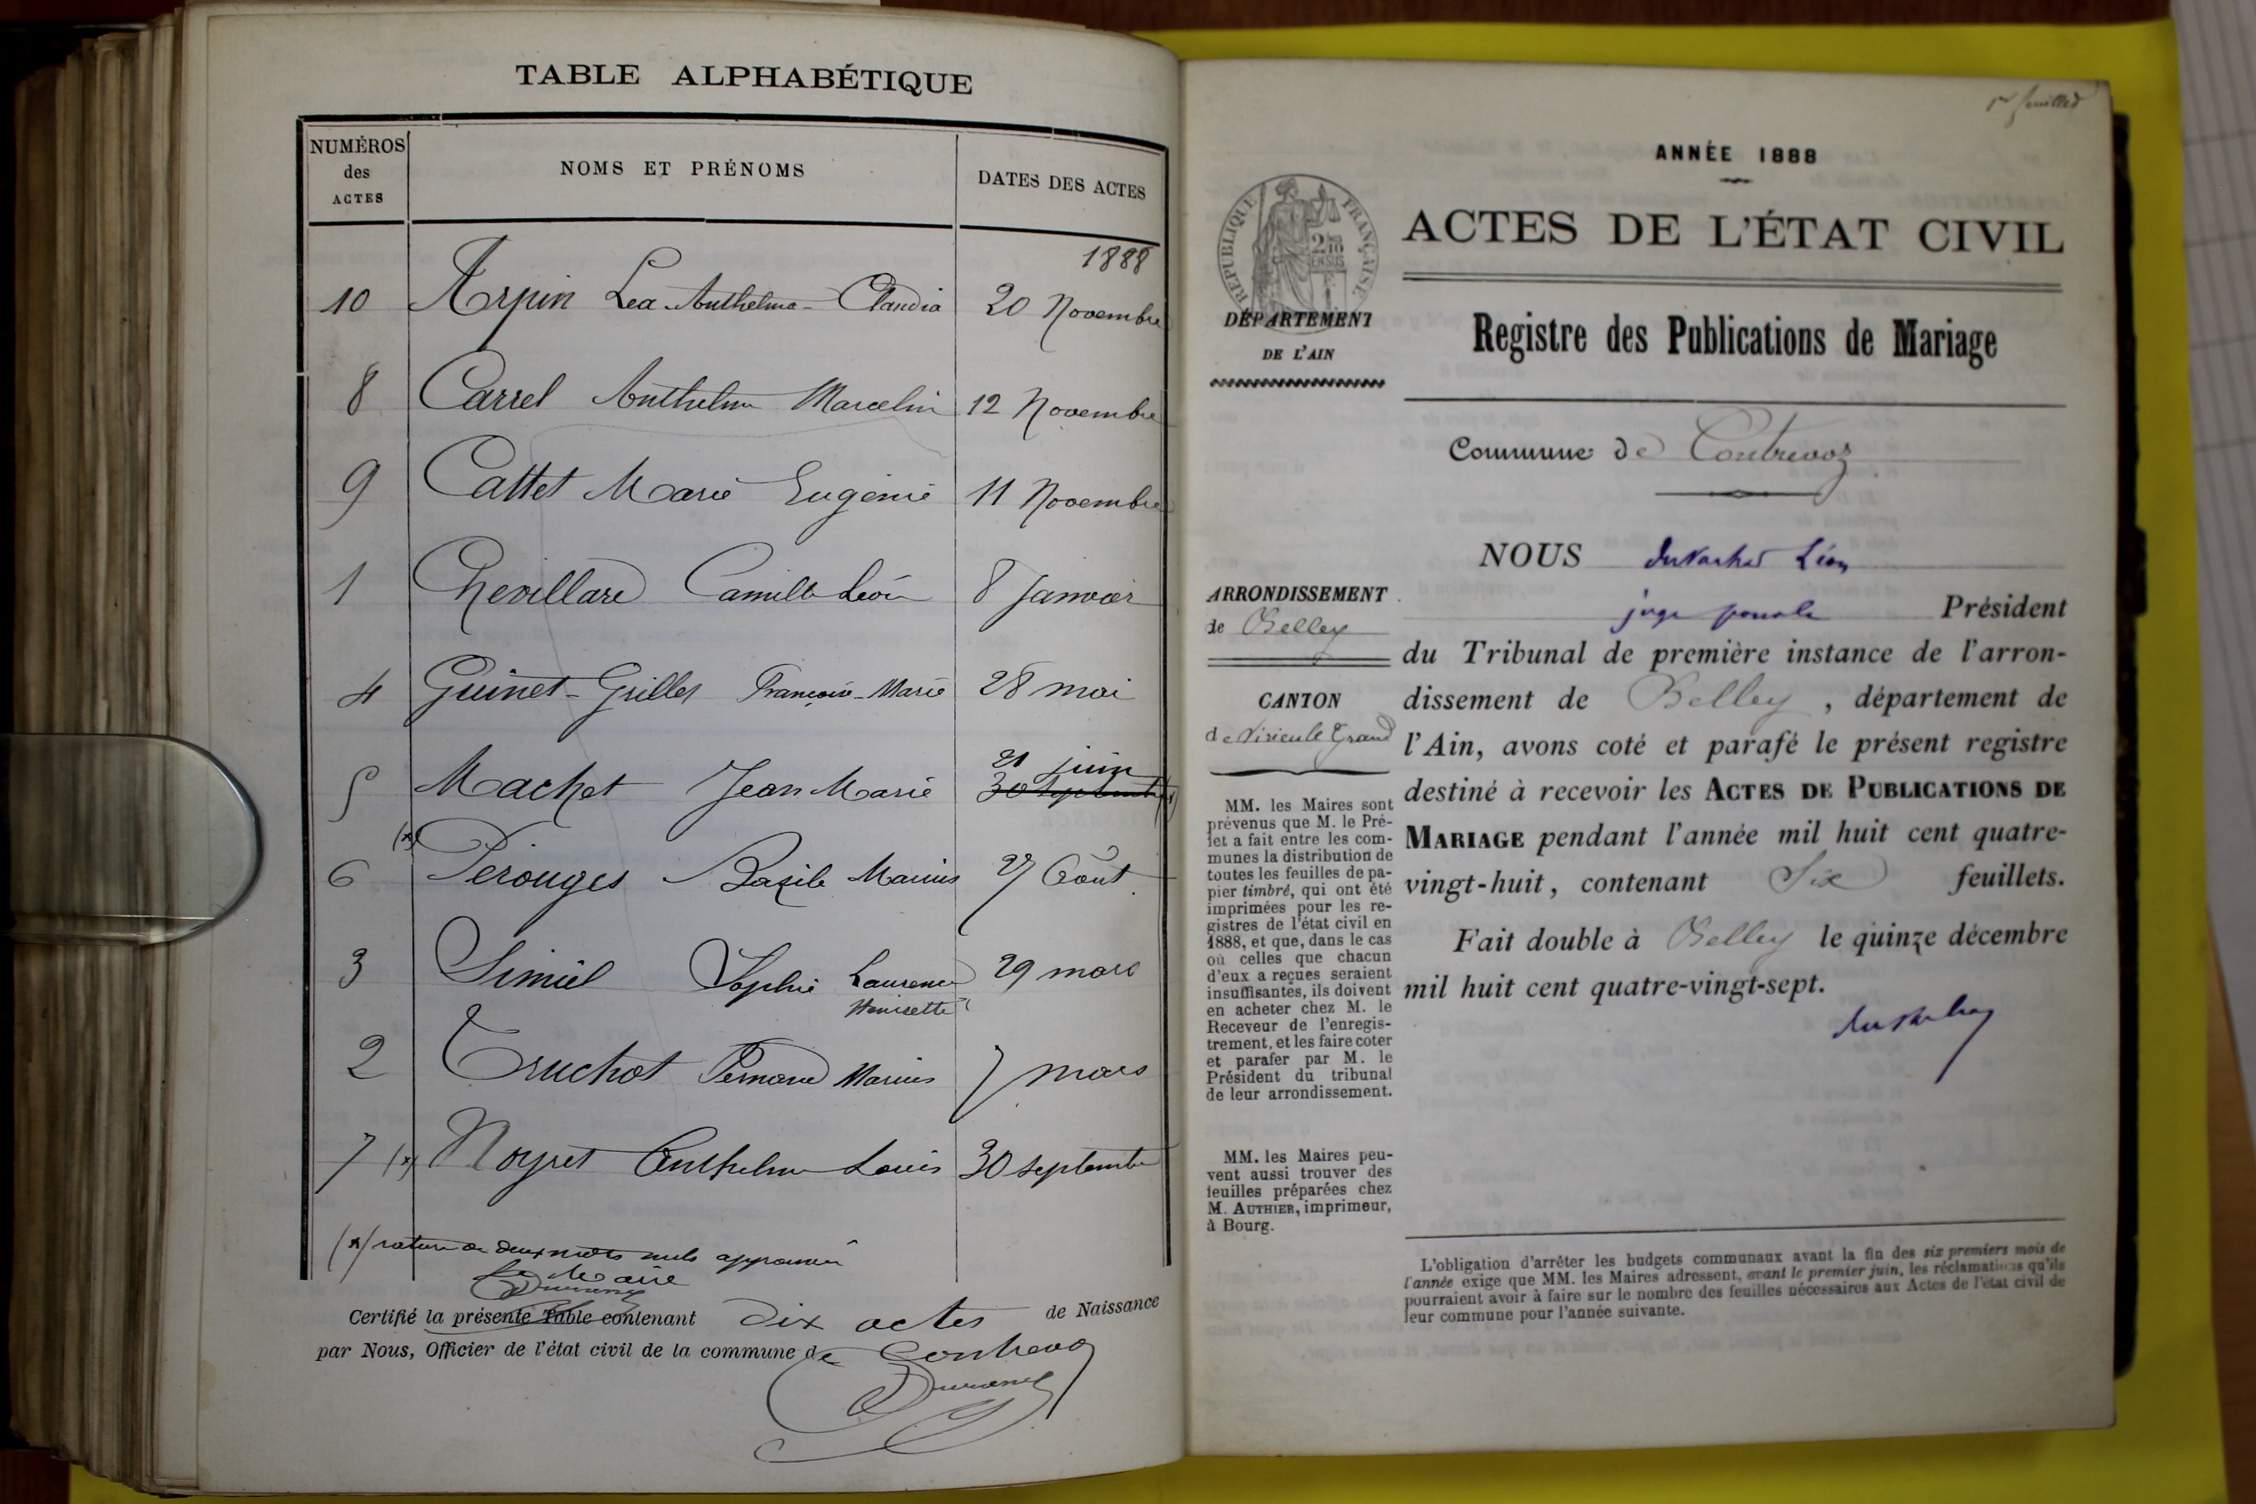 TABLE ALPHABÉTIQUE
NUMÉROS des ACTES
NOMS ET PRÉNOMS
DATES DES ACTES
1888
10 Arpin Lea Anthelma-Claudia 20 Novembre
8 Carrel Anthelme Marcelin 12 Novembre
9 Cattet Marie Eugénie 11 Novembre
1 Chevillard Camille Léon 8 Janvier
4 Guinet-Grilles Françoise-Marie 28 mai
21 juin
5 Machet Jean Marie 30 septembre (x)
6 (x) Pérouges Bazile Marius 27 Août
3 Simiel Sophie Laurence 29 mars
Henisette
2 Truchot Fernand Marius 7 mars
7 (x) Noyret Anthelme Louis 30 septembre
(x) rature de deux mots nuls approuvée
Le Maire
Certifié la présente Table contenant dix actes de Naissance
par Nous, Officier de l'état civil de la commune de Contrevoz
1er feuillet
ANNÉE 1888
RÉPUBLIQUE FRANÇAISE
ACTES DE L'ÉTAT CIVIL
DÉPARTEMENT
DE L'AIN
Registre des Publications de Mariage
Commune de Contrevoz
ARRONDISSEMENT
de Belley
CANTON
de Virieu le Grand
MM. les Maires sont
prévenus que M. le Pré-
fet a fait entre les com-
munes la distribution de
toutes les feuilles de pa-
pier timbré, qui ont été
imprimées pour les re-
gistres de l'état civil en
1888, et que, dans le cas
où celles que chacun
d'eux a reçues seraient
insuffisantes, ils doivent
en acheter chez M. le
Receveur de l'enregis-
trement, et les faire coter
et parafer par M. le
Président du tribunal
de leur arrondissement.
MM. les Maires peu-
vent aussi trouver des
feuilles préparées chez
M. AUTHIER, imprimeur,
à Bourg.
NOUS Léon
juge Président
du Tribunal de première instance de l'arron-
dissement de Belley, département de
l'Ain, avons coté et parafé le présent registre
destiné à recevoir les ACTES DE PUBLICATIONS DE
MARIAGE pendant l'année mil huit cent quatre-
vingt-huit, contenant Six feuillets.
Fait double à Belley le quinze décembre
mil huit cent quatre-vingt-sept.
L'obligation d'arrêter les budgets communaux avant la fin des six premiers mois de
l'année exige que MM. les Maires adressent, avant le premier juin, les réclamations qu'ils
pourraient avoir à faire sur le nombre des feuilles nécessaires aux Actes de l'état civil de
leur commune pour l'année suivante.